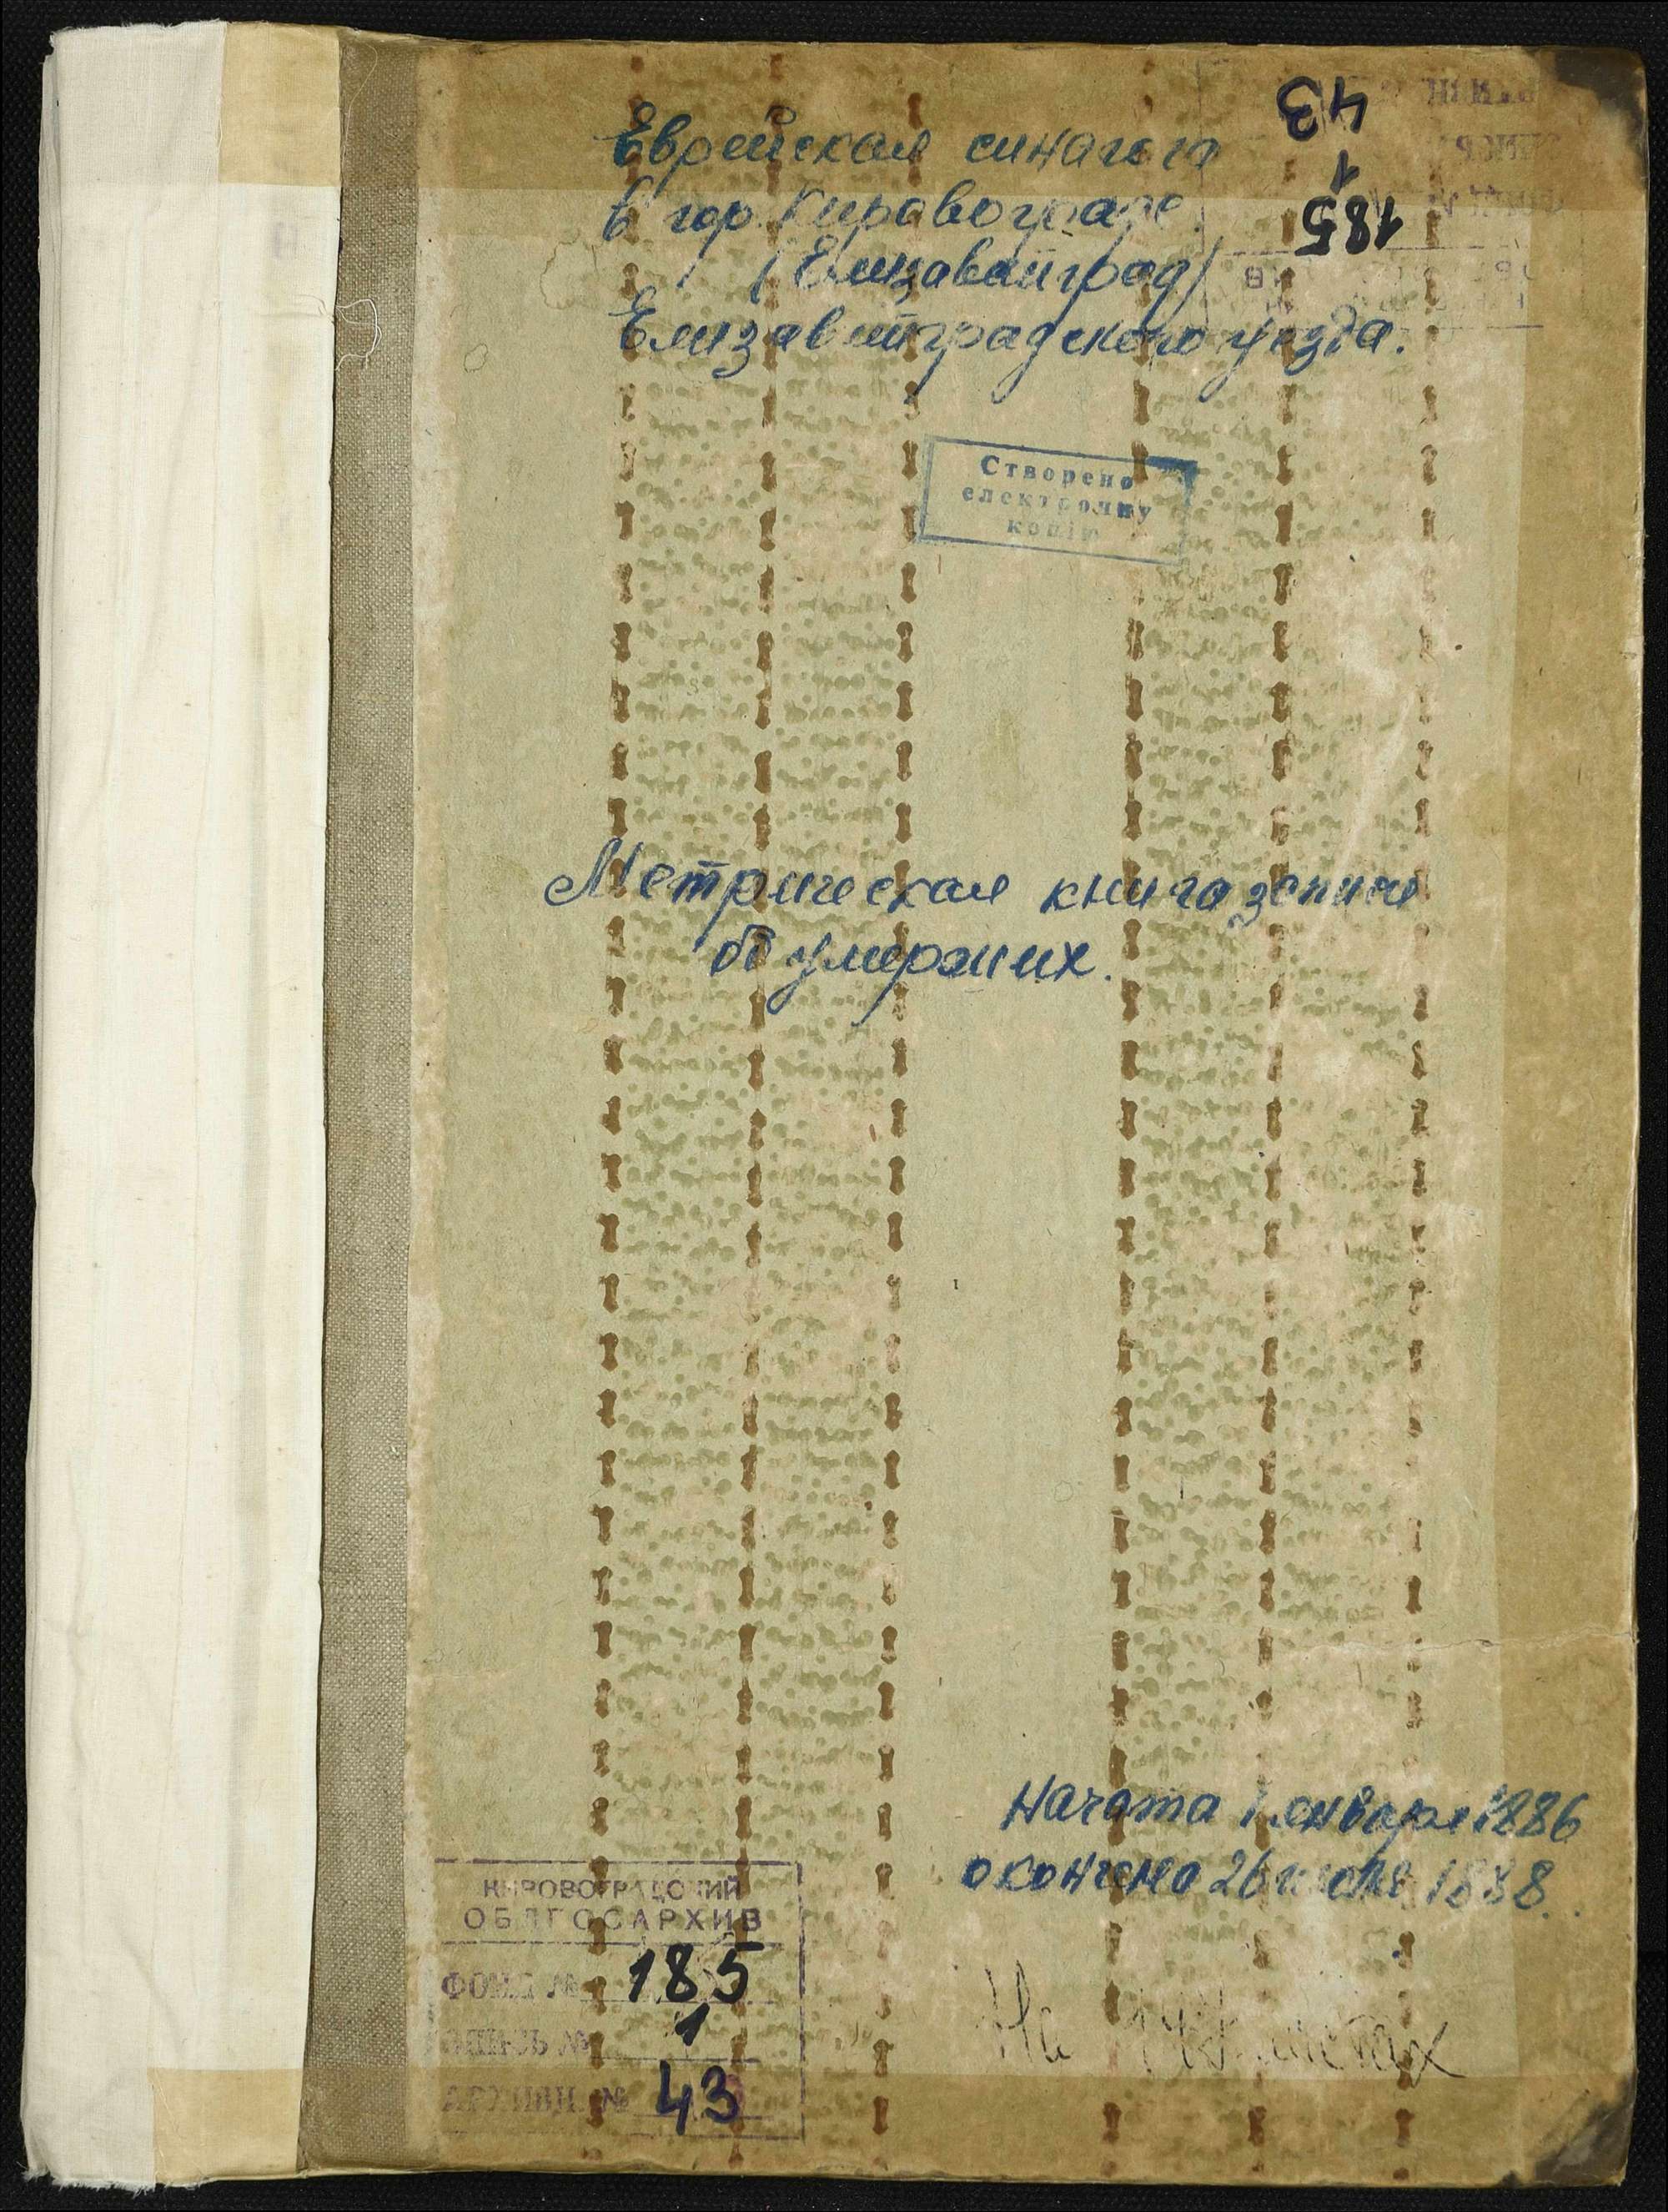 43
1
185
Еврейская синагога
в гор. Кировограде
/Елизаветград/
Елизаветградского уезда.
Створено
електронну
копію
Метрическая книга записи
об умерших.
Начата 1 января 1886
окончена 26 1888.
КИРОВОГРАДСКИЙ
ОБЛГОСАРХИВ
ФОНД № 185
ОПИСЬ № 1
АРХИВН. № 43
На листах